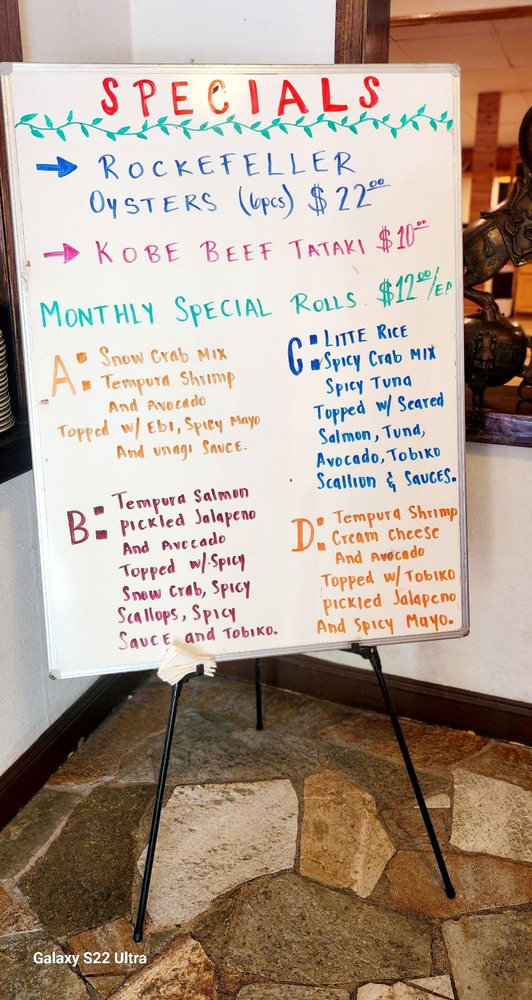 SPECIALS
ROCKEFELLER
OYSTERS (6pcs) $22.00
KOBE BEEF TATAKI $10.00
MONTHLY SPECIAL ROLLS $12.00/EA
A: Snow Crab Mix
Tempura Shrimp
And Avocado
Topped w/ Ebi, Spicy Mayo
And unagi Sauce.
B: Tempura Salmon
pickled Jalapeno
And Avocado
Topped w/ Spicy
Snow Crab, Spicy
Scallops, Spicy
Sauce and Tobiko.
C: Litte Rice
Spicy Crab Mix
Spicy Tuna
Topped w/ Seared
Salmon, Tuna,
Avocado, Tobiko
Scallion & Sauces.
D: Tempura Shrimp
Cream Cheese
And Avocado
Topped w/ Tobiko
pickled Jalapeno
And Spicy Mayo.
Galaxy S22 Ultra